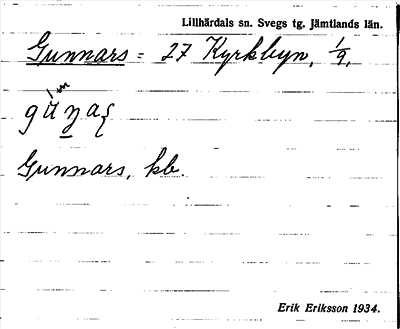 Lillhärdals sn. Svegs tg. Jämtlands län.
Gunnars = 27 Kyrkbyn, 1/9,
Gunnars, kb.
Erik Eriksson 1934.